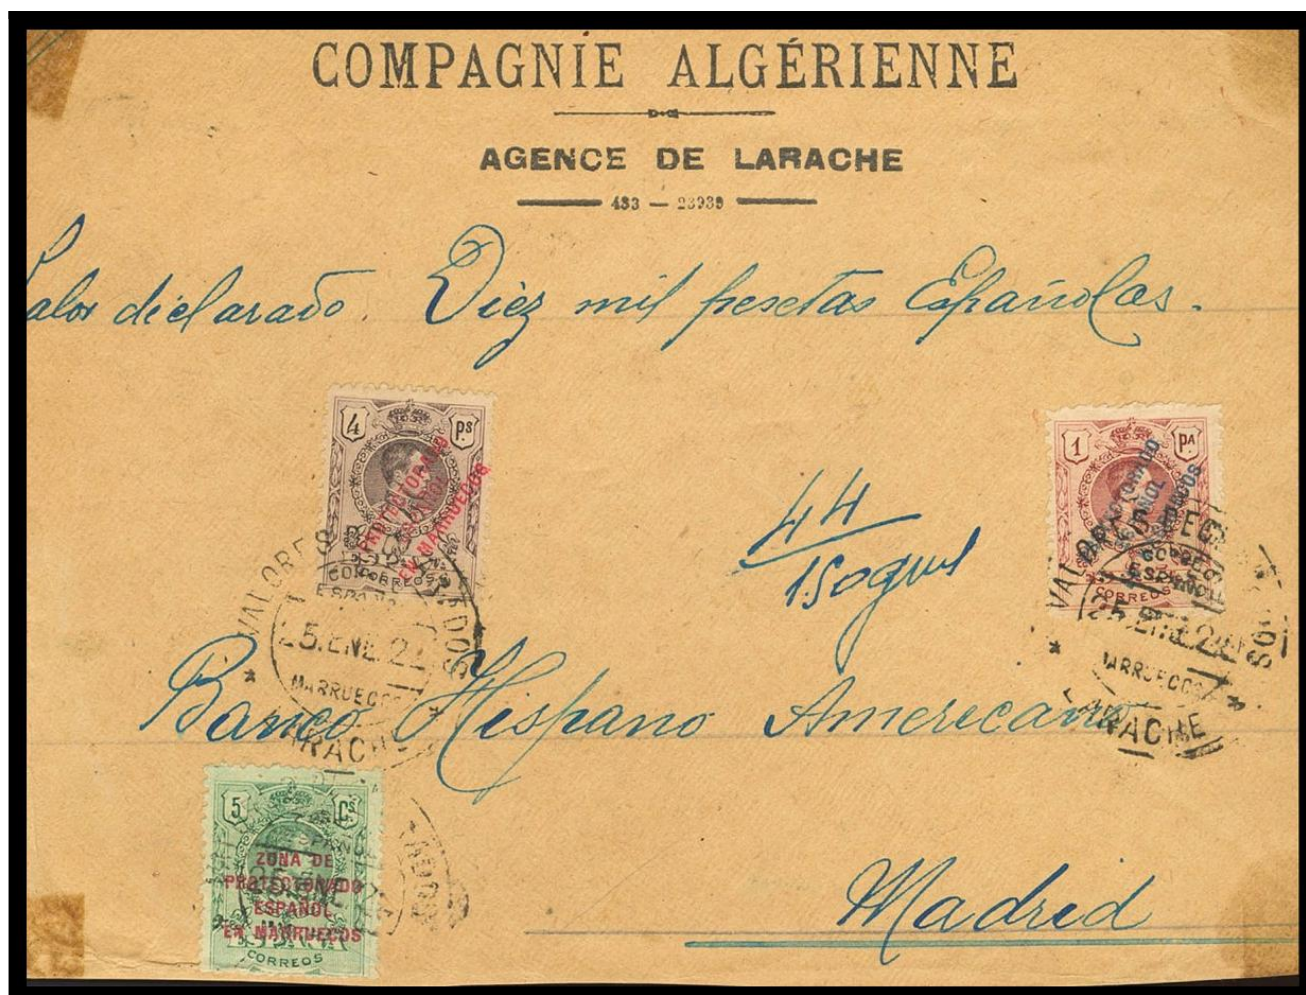 COMPAGNIE ALGÉRIENNE
AGENCE DE LARACHE
433 — 23939
Valor déclarado. Diéz mil pesetas Españolas.
4 Ps
PROTECTORADO
ESPAÑOL
EN MARRUECOS
CORREOS
1 PA
PROTECTORADO
ESPAÑOL
EN MARRUECOS
CORREOS
44
150 grms
VALORES DECLARADOS
CORREOS
ESPAÑOL
25.ENE.22
MARRUECOS
LARACHE
VALORES DECLARADOS
CORREOS
ESPAÑOL
25.ENE.22
MARRUECOS
LARACHE
Banco Hispano Americano
5 Cs
ZONA DE
PROTECTORADO
ESPAÑOL
EN MARRUECOS
CORREOS
25.ENE
Madrid